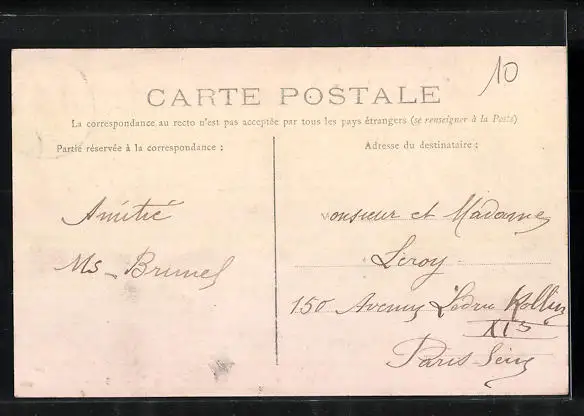 10
CARTE POSTALE
La correspondance au recto n'est pas acceptée par tous les pays étrangers (se renseigner à la Poste)
Partie réservée à la correspondance :
Adresse du destinataire :
Amitié
Ms - Brunel
Monsieur et Madame
Leroy
150 Avenue Ledru Rollin
XIe
Paris Seine